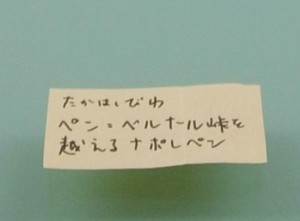 たかはしびわ
ペン=ベルナール峠を
越える ナポレペン